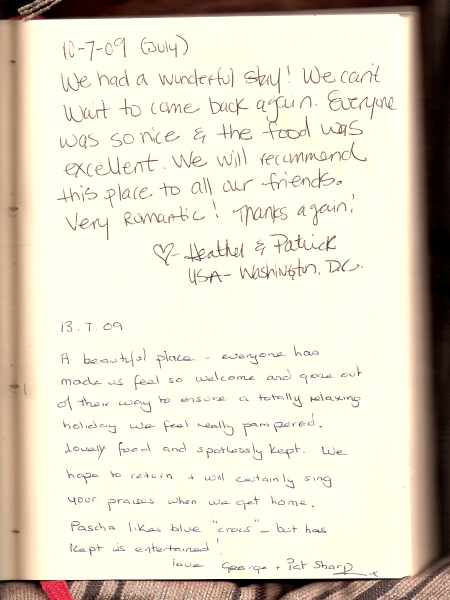 10-7-09 (July)
We had a wonderful stay! We can't
wait to come back again. Everyone
was so nice & the food was
excellent. We will recommend
this place to all our friends.
Very Romantic! Thanks again!
♡- Heather & Patrick
USA - Washington, D.C.
13.7.09
A beautiful place - everyone has
made us feel so welcome and gone out
of their way to ensure a totally relaxing
holiday. We feel really pampered.
Lovely food and spotlessly kept. We
hope to return + will certainly sing
your praises when we get home.
Pascha likes blue "crocs" - but has
kept us entertained!
love George + Pat Sharp x